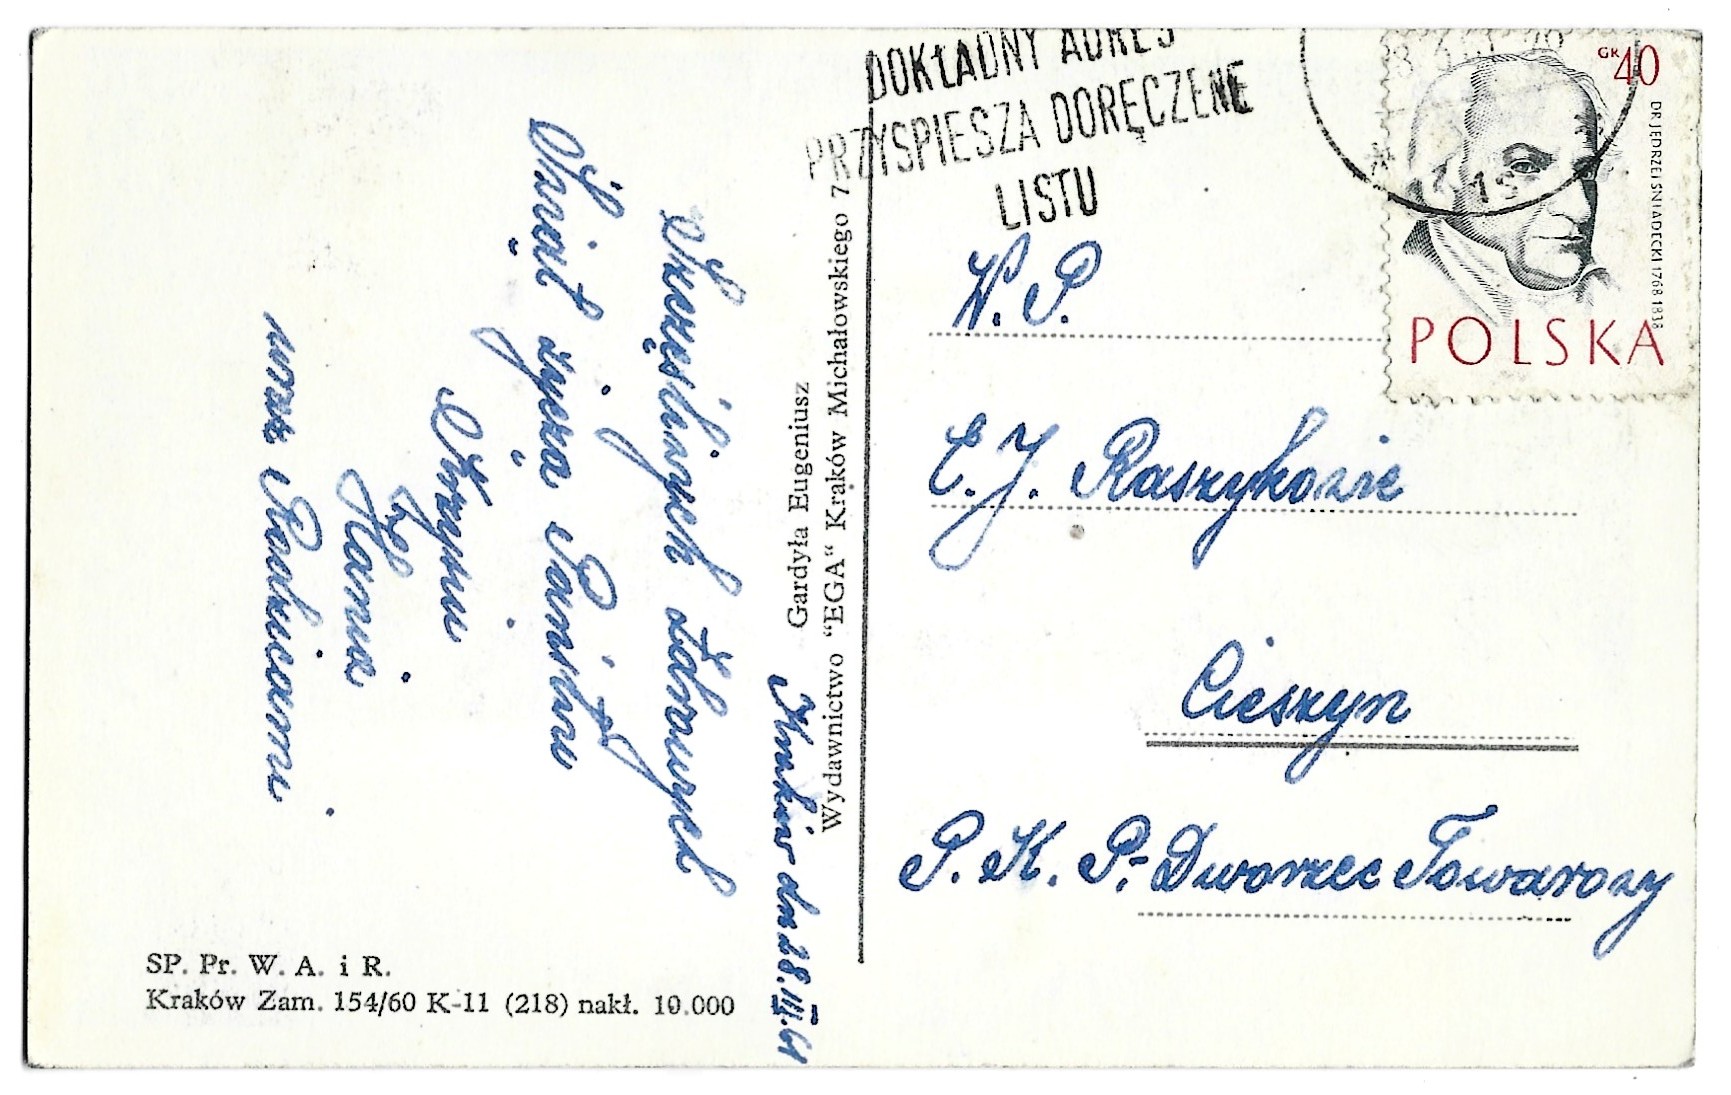 Kraków dn 28.III.61
Szczęśliwych Zdrowych
Świąt życzą Państwu
Krzysiu
Hania
wraz z Rodzicami
Gardyła Eugeniusz
Wydawnictwo "EGA" Kraków Michałowskiego 7
SP. Pr. W. A. i R.
Kraków Zam. 154/60 K-11 (218) nakł. 10.000
DOKŁADNY ADRES
PRZYSPIESZA DORĘCZENIE
LISTU
GR 40
DR. JĘDRZEJ ŚNIADECKI 1768 1838
POLSKA
W. P.
E. J. Raszykowie
Cieszyn
P. K. P. Dworzec Towarowy